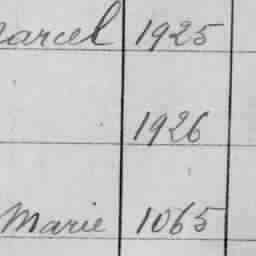 Marcel 1925
1926
Marie 1065